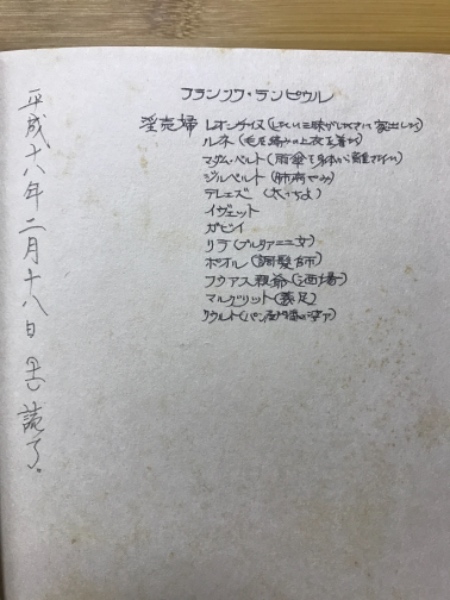 フランソワ・ランピウル
淫売婦 レオンティヌ(
ルネ(毛糸編みの上衣を着た)
マダム・ベルト(雨傘を身体から離さない)
ジルベルト(肺病やみ)
テレェズ (太っちよ)
イヴェット
ガビイ
リラ(ブルターニュ女)
ポオル(調髪師)
フウアス親爺(酒場)
マルグリット(義足)
ラウルト(パン
平成十八年二月十八日 読了.